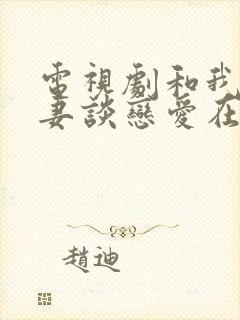 電視劇和我
妻談戀愛在
趙迪